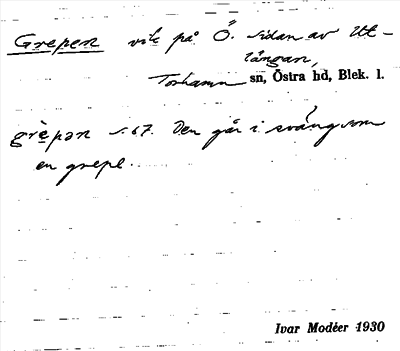 Grepen vik på Ö. sidan av Ut-
längan,
Torhamn sn, Östra hd, Blek. l.
grèpən s. 67. Den går i svång som
en grepe.
Ivar Modéer 1930